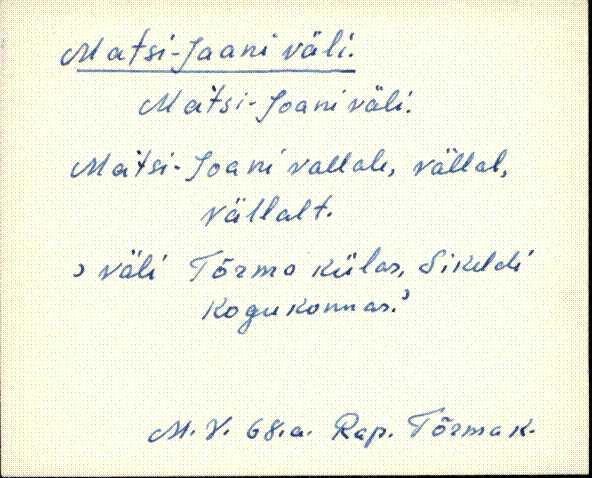 Matsi-Jaani väli.
Matsi-Joani väli.
Matsi-Joani vallale, vällal,
vällalt.
› väli Tõrma külas, Sikeldi
kogukonnas.›
M.V. 68.a. Rap. Tõrma k.